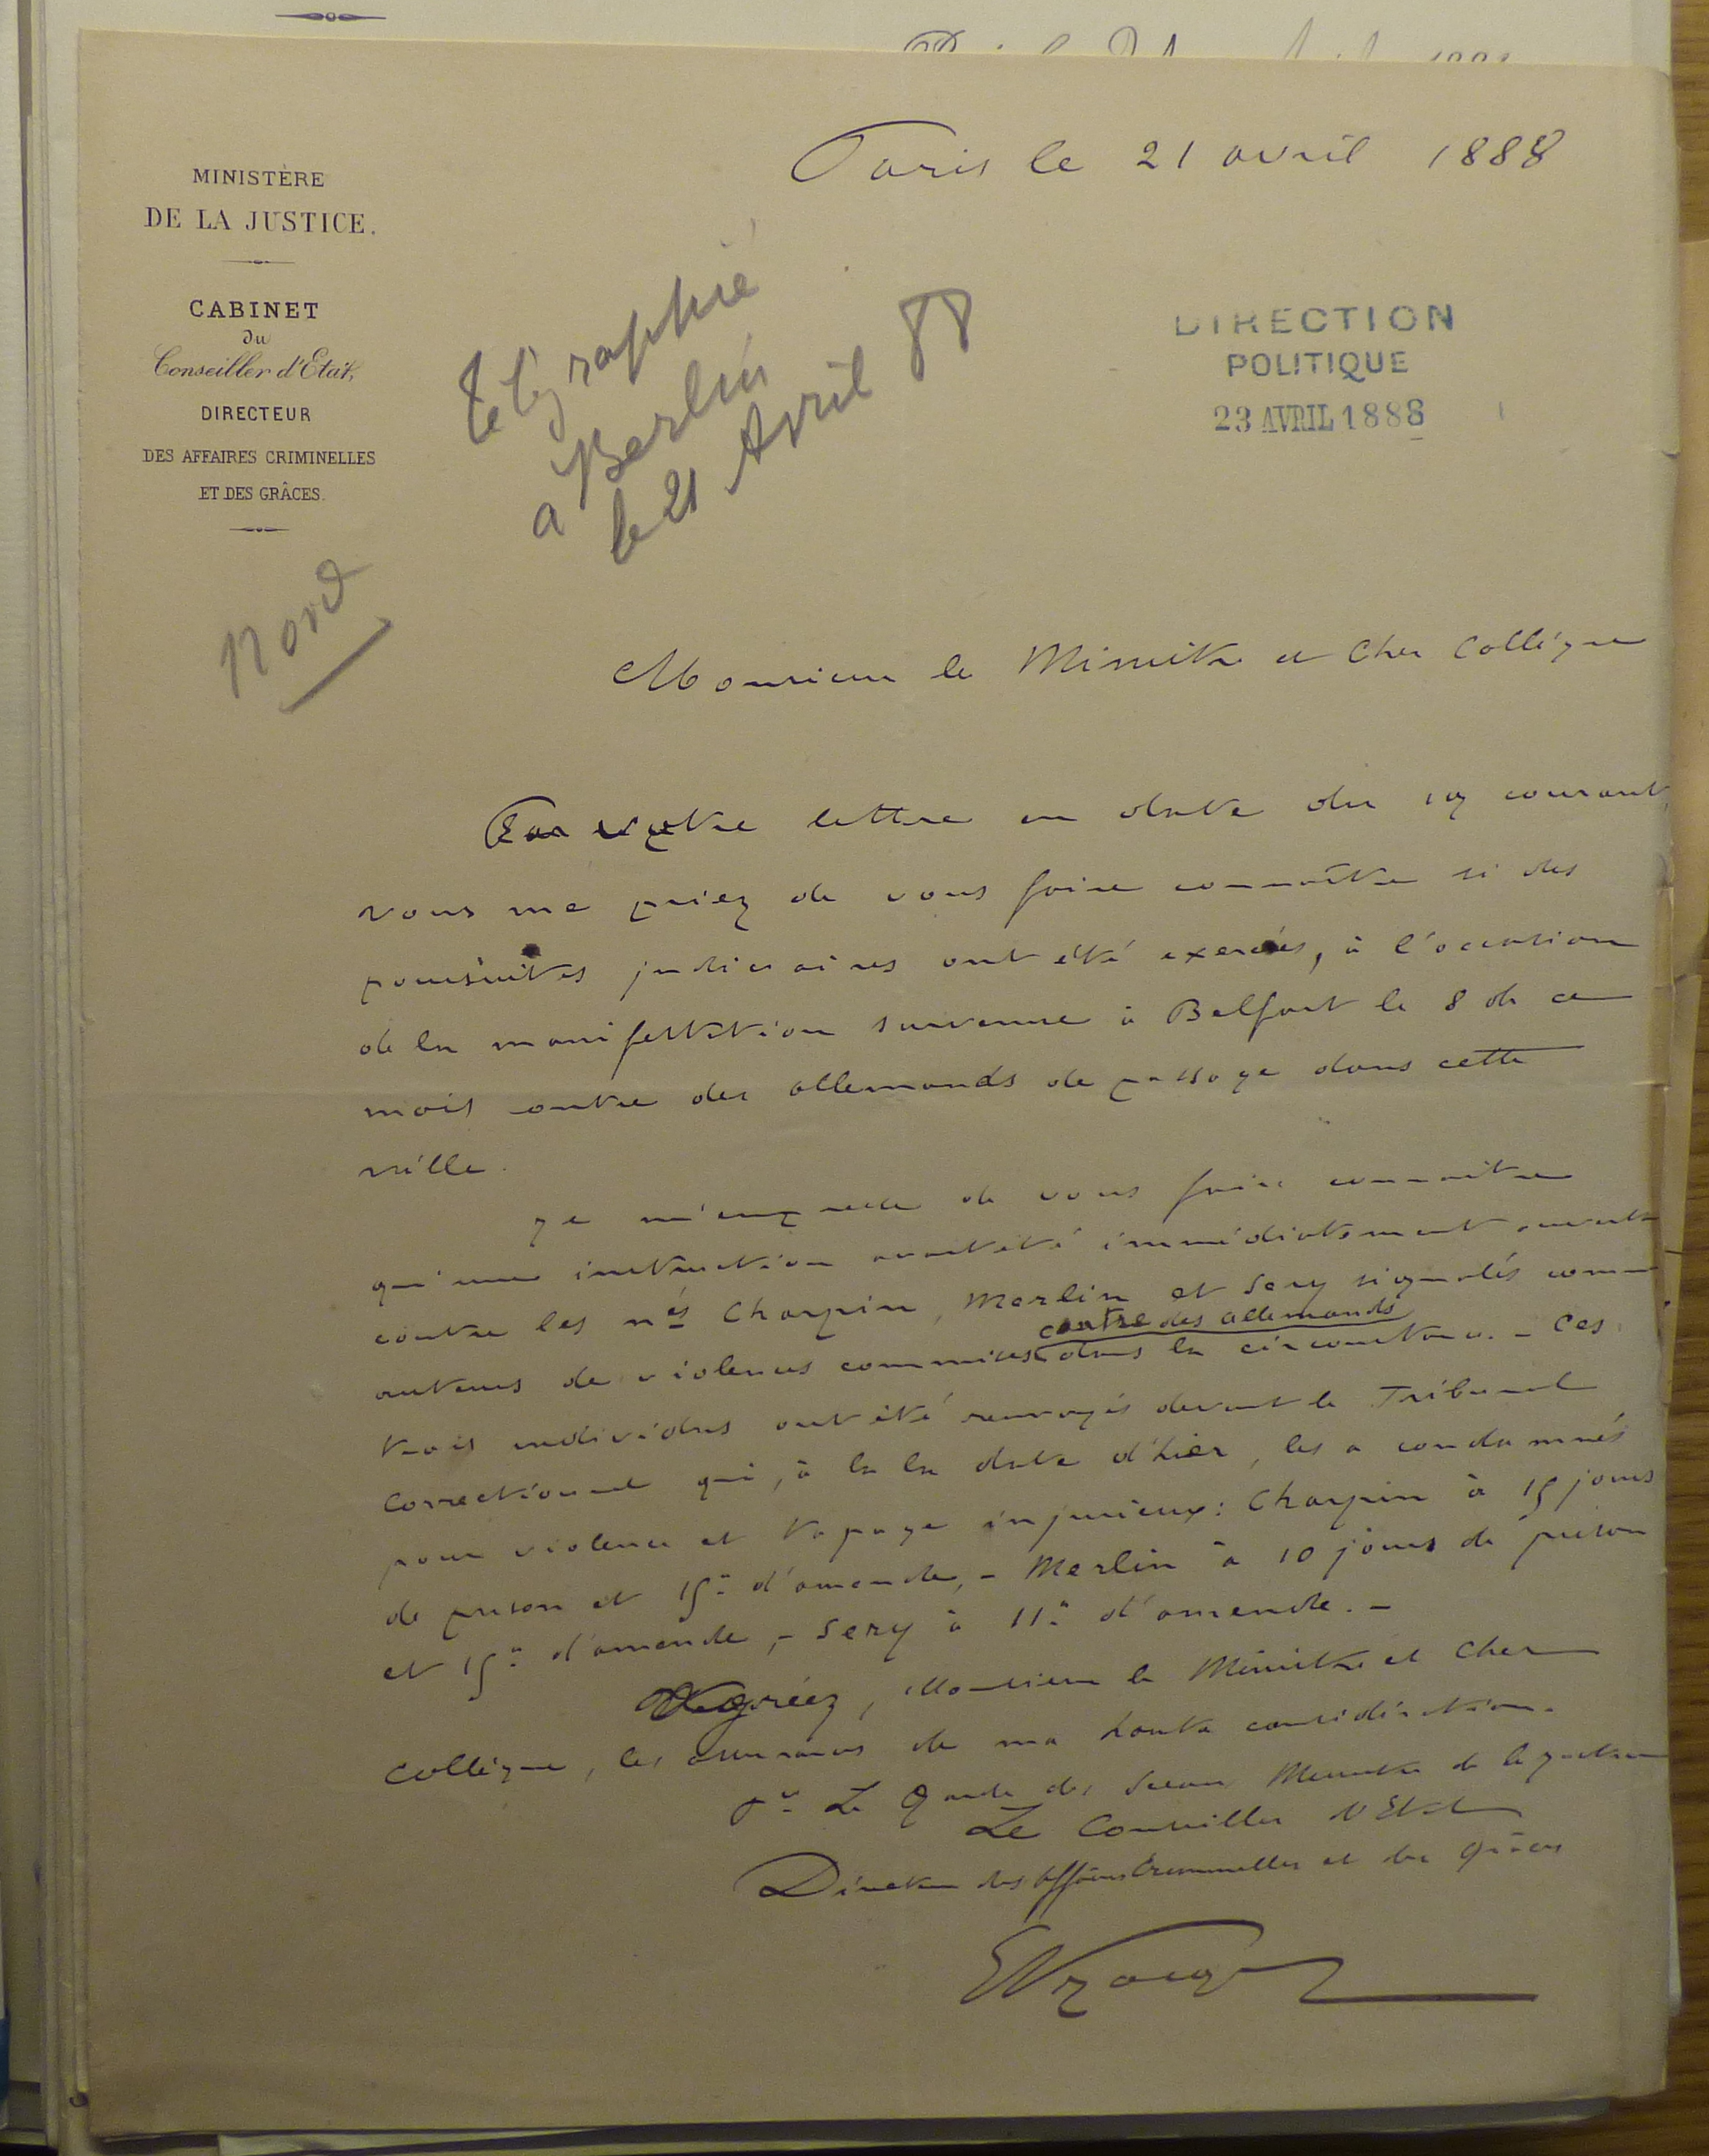 Paris le 21 avril 1888
MINISTÈRE
DE LA JUSTICE.
CABINET
du
Conseiller d'Etat,
DIRECTEUR
DES AFFAIRES CRIMINELLES
ET DES GRÂCES.
Télégraphié
a Berlin
le 21 Avril 88
DIRECTION
POLITIQUE
23 AVRIL 1888
Nord
Monsieur le Ministre et Cher Collègue
Par votre lettre en date du 19 courant,
vous me priez de vous faire connaître si des
poursuites judiciaires ont été exercées, à l'occasion
de la manifestation survenue à Belfort le 8 de ce
mois contre des allemands de passage dans cette
ville.
Je m'empresse de vous faire connaitre
qu'une instruction avait été immédiatement ouverte
contre les nés Charpin, Merlin et Sery signalés comme
contre des allemands
auteurs de violences commises dans la circonstance. - Ces
trois individus ont été renvoyés devant le Tribunal
Correctionnel qui, à la la date d'hier, les a condamnés
pour violence et tapage injurieux : Charpin à 15 jours
de prison et 15 d'amende, - Merlin à 10 jours de prison
et 15 d'amende, - Sery à 11 d'amende. -
Agréez, Monsieur le Ministre et Cher
Collègue, les assurances de ma haute considération.
Pr Le Garde des Sceaux Ministre de la Justice
Le Conseiller d'Etat
Directeur des Affaires Criminelles et des Grâces